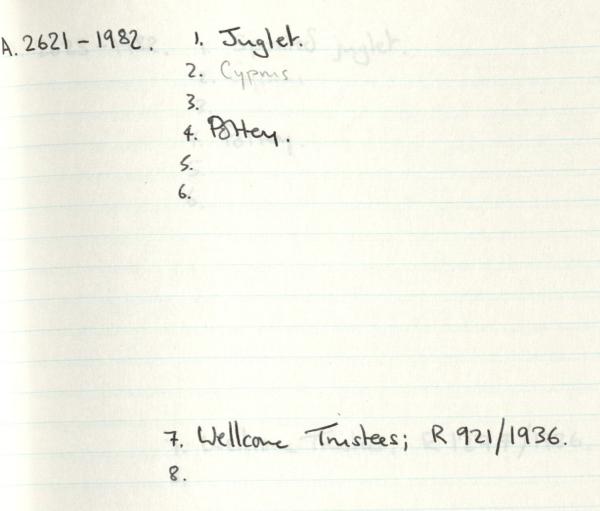 A. 2621-1982. 1. Juglet.
2. Cyprus
3.
4. Pottery.
5.
6.
7. Wellcome Trustees; R 921/1936.
8.